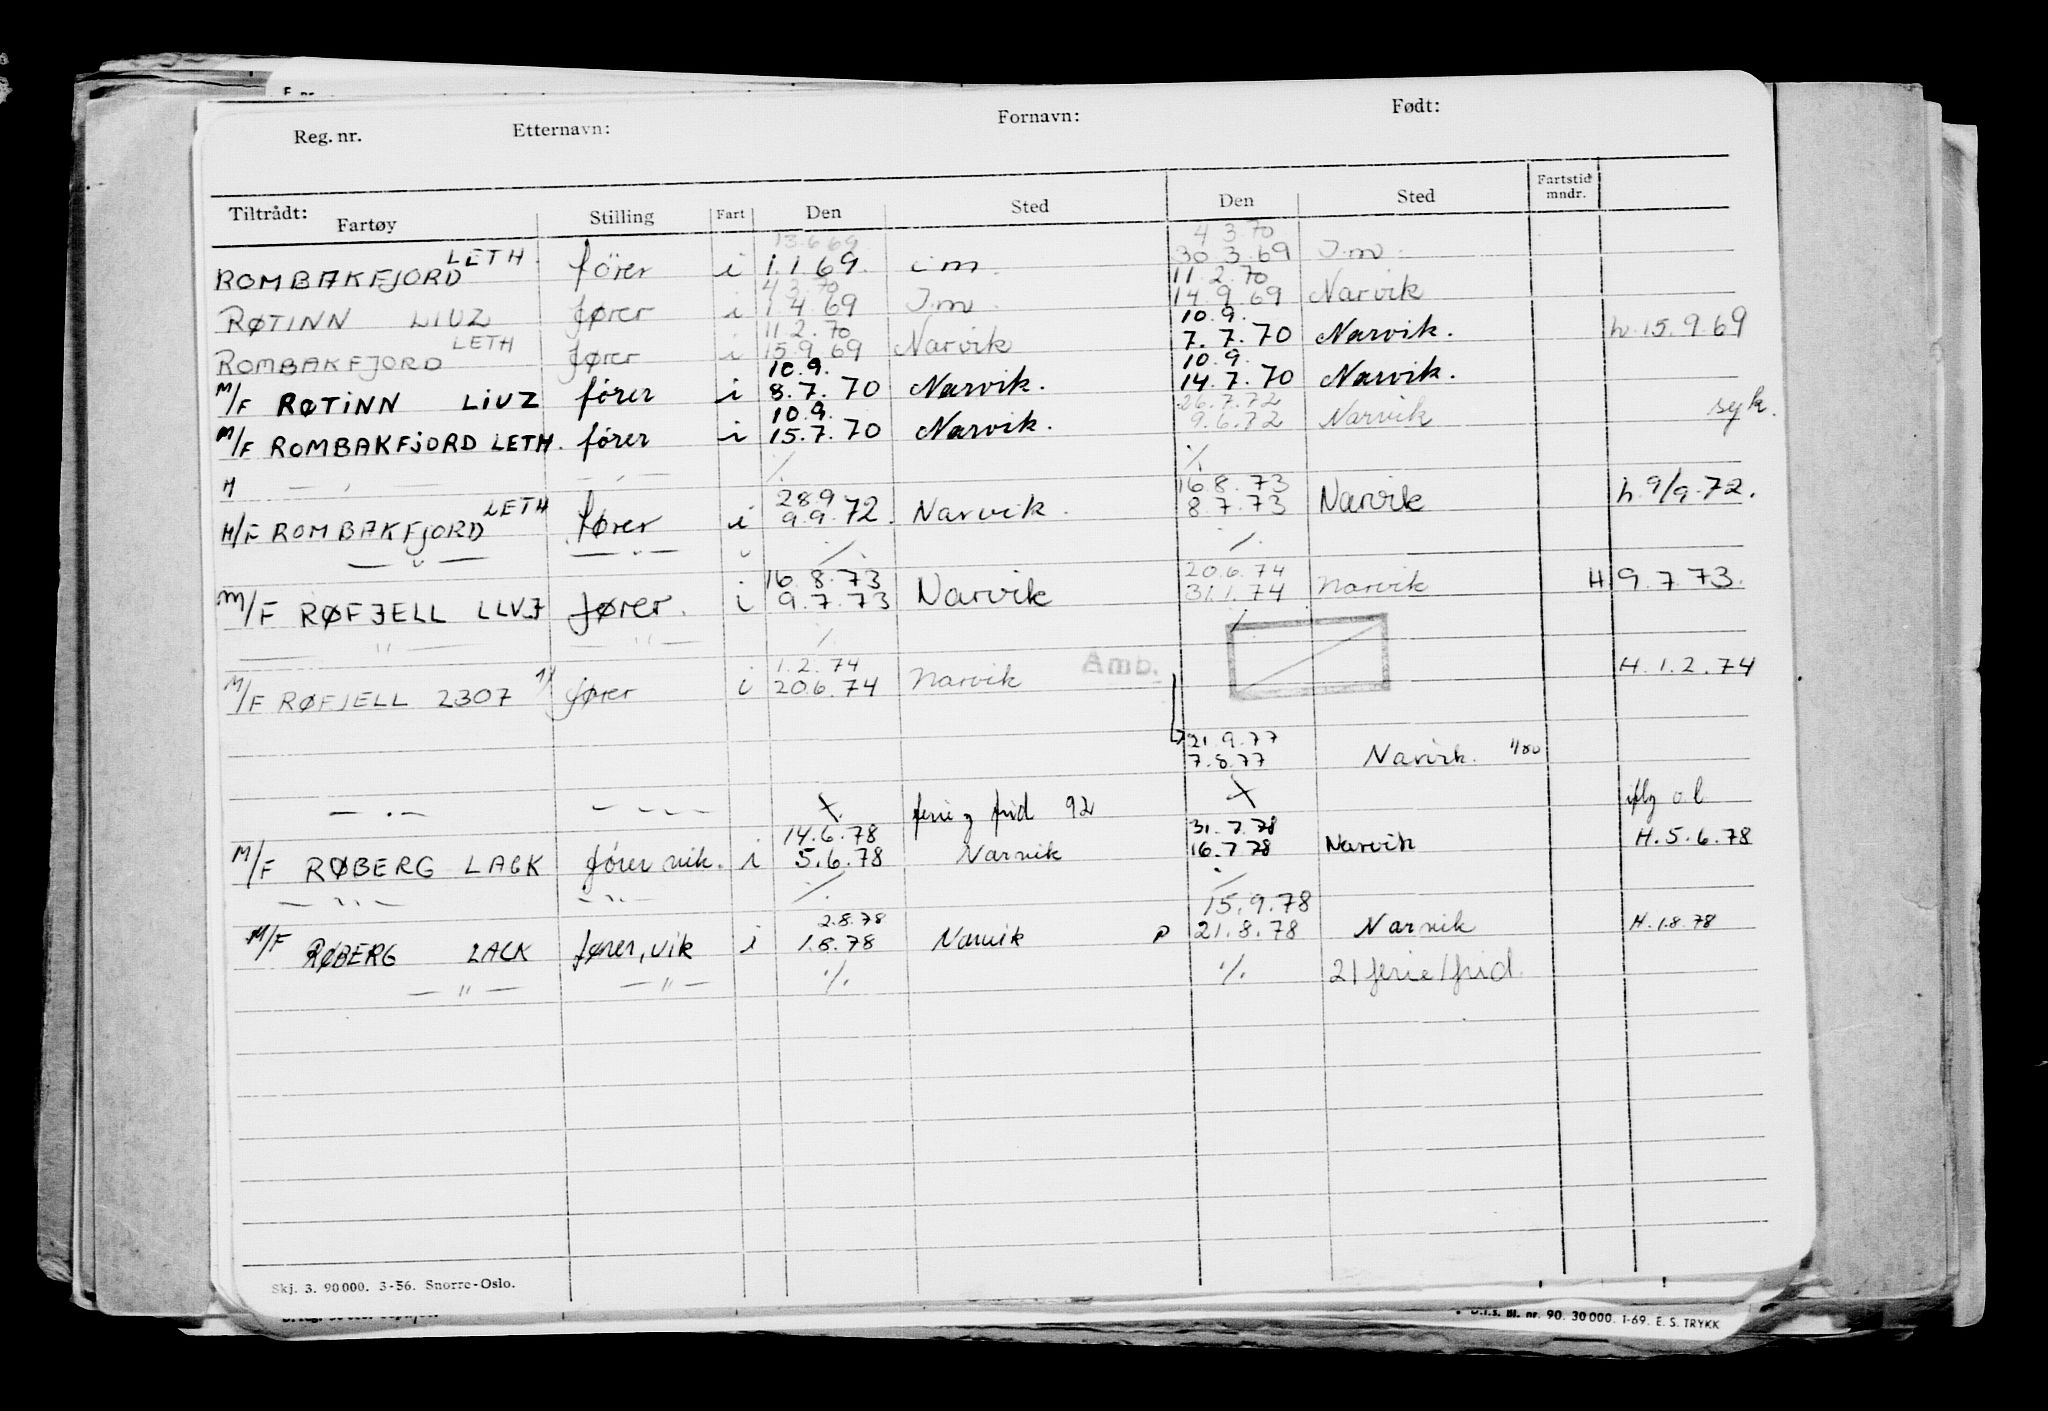 Reg. nr. Etternavn: Fornavn: Født:
Tiltrådt: Fartøy Stilling Fart Den Sted Den Sted Fartstid mndr.
13.6.69. 4 3.70
ROMBAKFJORD LETH. fører i 1.1.69. i m. 30 3.69 I.m.
4 3.70 11.2.70
RØTINN LIUZ fører i 1.4.69 I.m. 14.9.69 Narvik
11 2.70 10.9.
ROMBAKFJORD LETH fører i 15.9.69 Narvik 7.7.70 Narvik. h.15.9.69
10.9. 10.9.
M/F RØTINN LIUZ fører i 8.7.70 Narvik. 14.7.70 Narvik.
10.9. 26.7.72
M/F ROMBAKFJORD LETH. fører i 15.7.70 Narvik. 9.6.72 Narvik syk.
— " — — " — ·/. ·/.
28.9 16.8.73
M/F ROMBAKFJORD LETH fører i 9.9.72. Narvik. 8.7.73 Narvik h.9/9.72.
— " — — " — " ·/. ·/.
16.8.73 20.6.74
M/F RØFJELL LLVJ fører. i 9.7.73 Narvik 31.1.74 Narvik H 9.7.73.
— " — — " — ·/. ·/.
1.2.74
M/F RØFJELL 2307 fører i 20.6.74 Narvik Amb. H.1.2.74
21.9.77
7.8.77 Narvik. 1/80
— " — — " — ferie og frid 92
14.6.78 31.7.78
M/F RØBERG LACK fører vik. i 5.6.78 Narvik 16.7.78 Narvik H.5.6.78
— " — — " — ·/. ·/.
2.8.78 15.9.78
M/F RØBERG LACK fører, vik i 1.8.78 Narvik P 21.8.78 Narvik H.1.8.78
— " — — " — ·/. ·/. 21 ferie/frid.
Skj. 3. 90000. 3-56. Snorre-Oslo.
D.i.s. Bl. nr. 90. 30000. 1-69. E. S. TRYKK